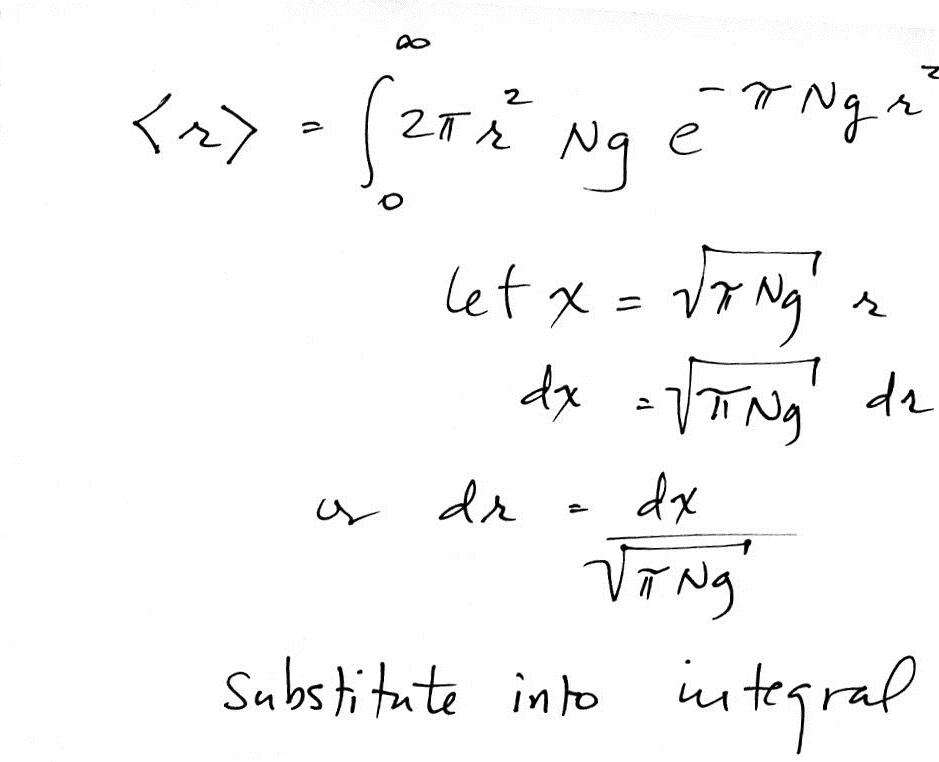 ⟨r⟩ = ∫₀^∞ 2πr² Ng e^(-πNgr²)
let x = √(πNg) r
dx = √(πNg) dr
or dr = dx/√(πNg)
substitute into integral